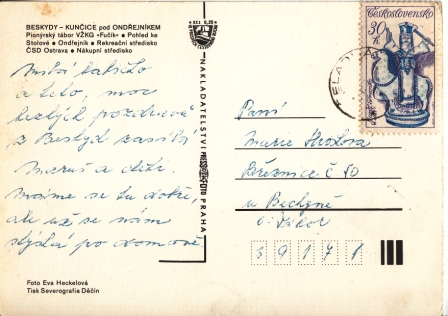 BESKYDY - KUNČICE pod ONDŘEJNÍKEM
Pionýrský tábor VŽKG «Fučík» • Pohled ke
Stolové • Ondřejník • Rekreační středisko
ČSD Ostrava • Nákupní středisko
babičko
a dědo, moc
hezkých pozdravů
z Beskyd zasílá
a děti.
Máme se tu dobře,
ale už se nám
stýská po domově.
Foto Eva Heckelová
Tisk Severografia Děčín
NAKLADATELSTVÍ PRESSFOTO PRAHA
Kčs 0,20
Československo
30 h
Paní
Marie
Březnice č 50
u Bechyně
o. Tábor
39171